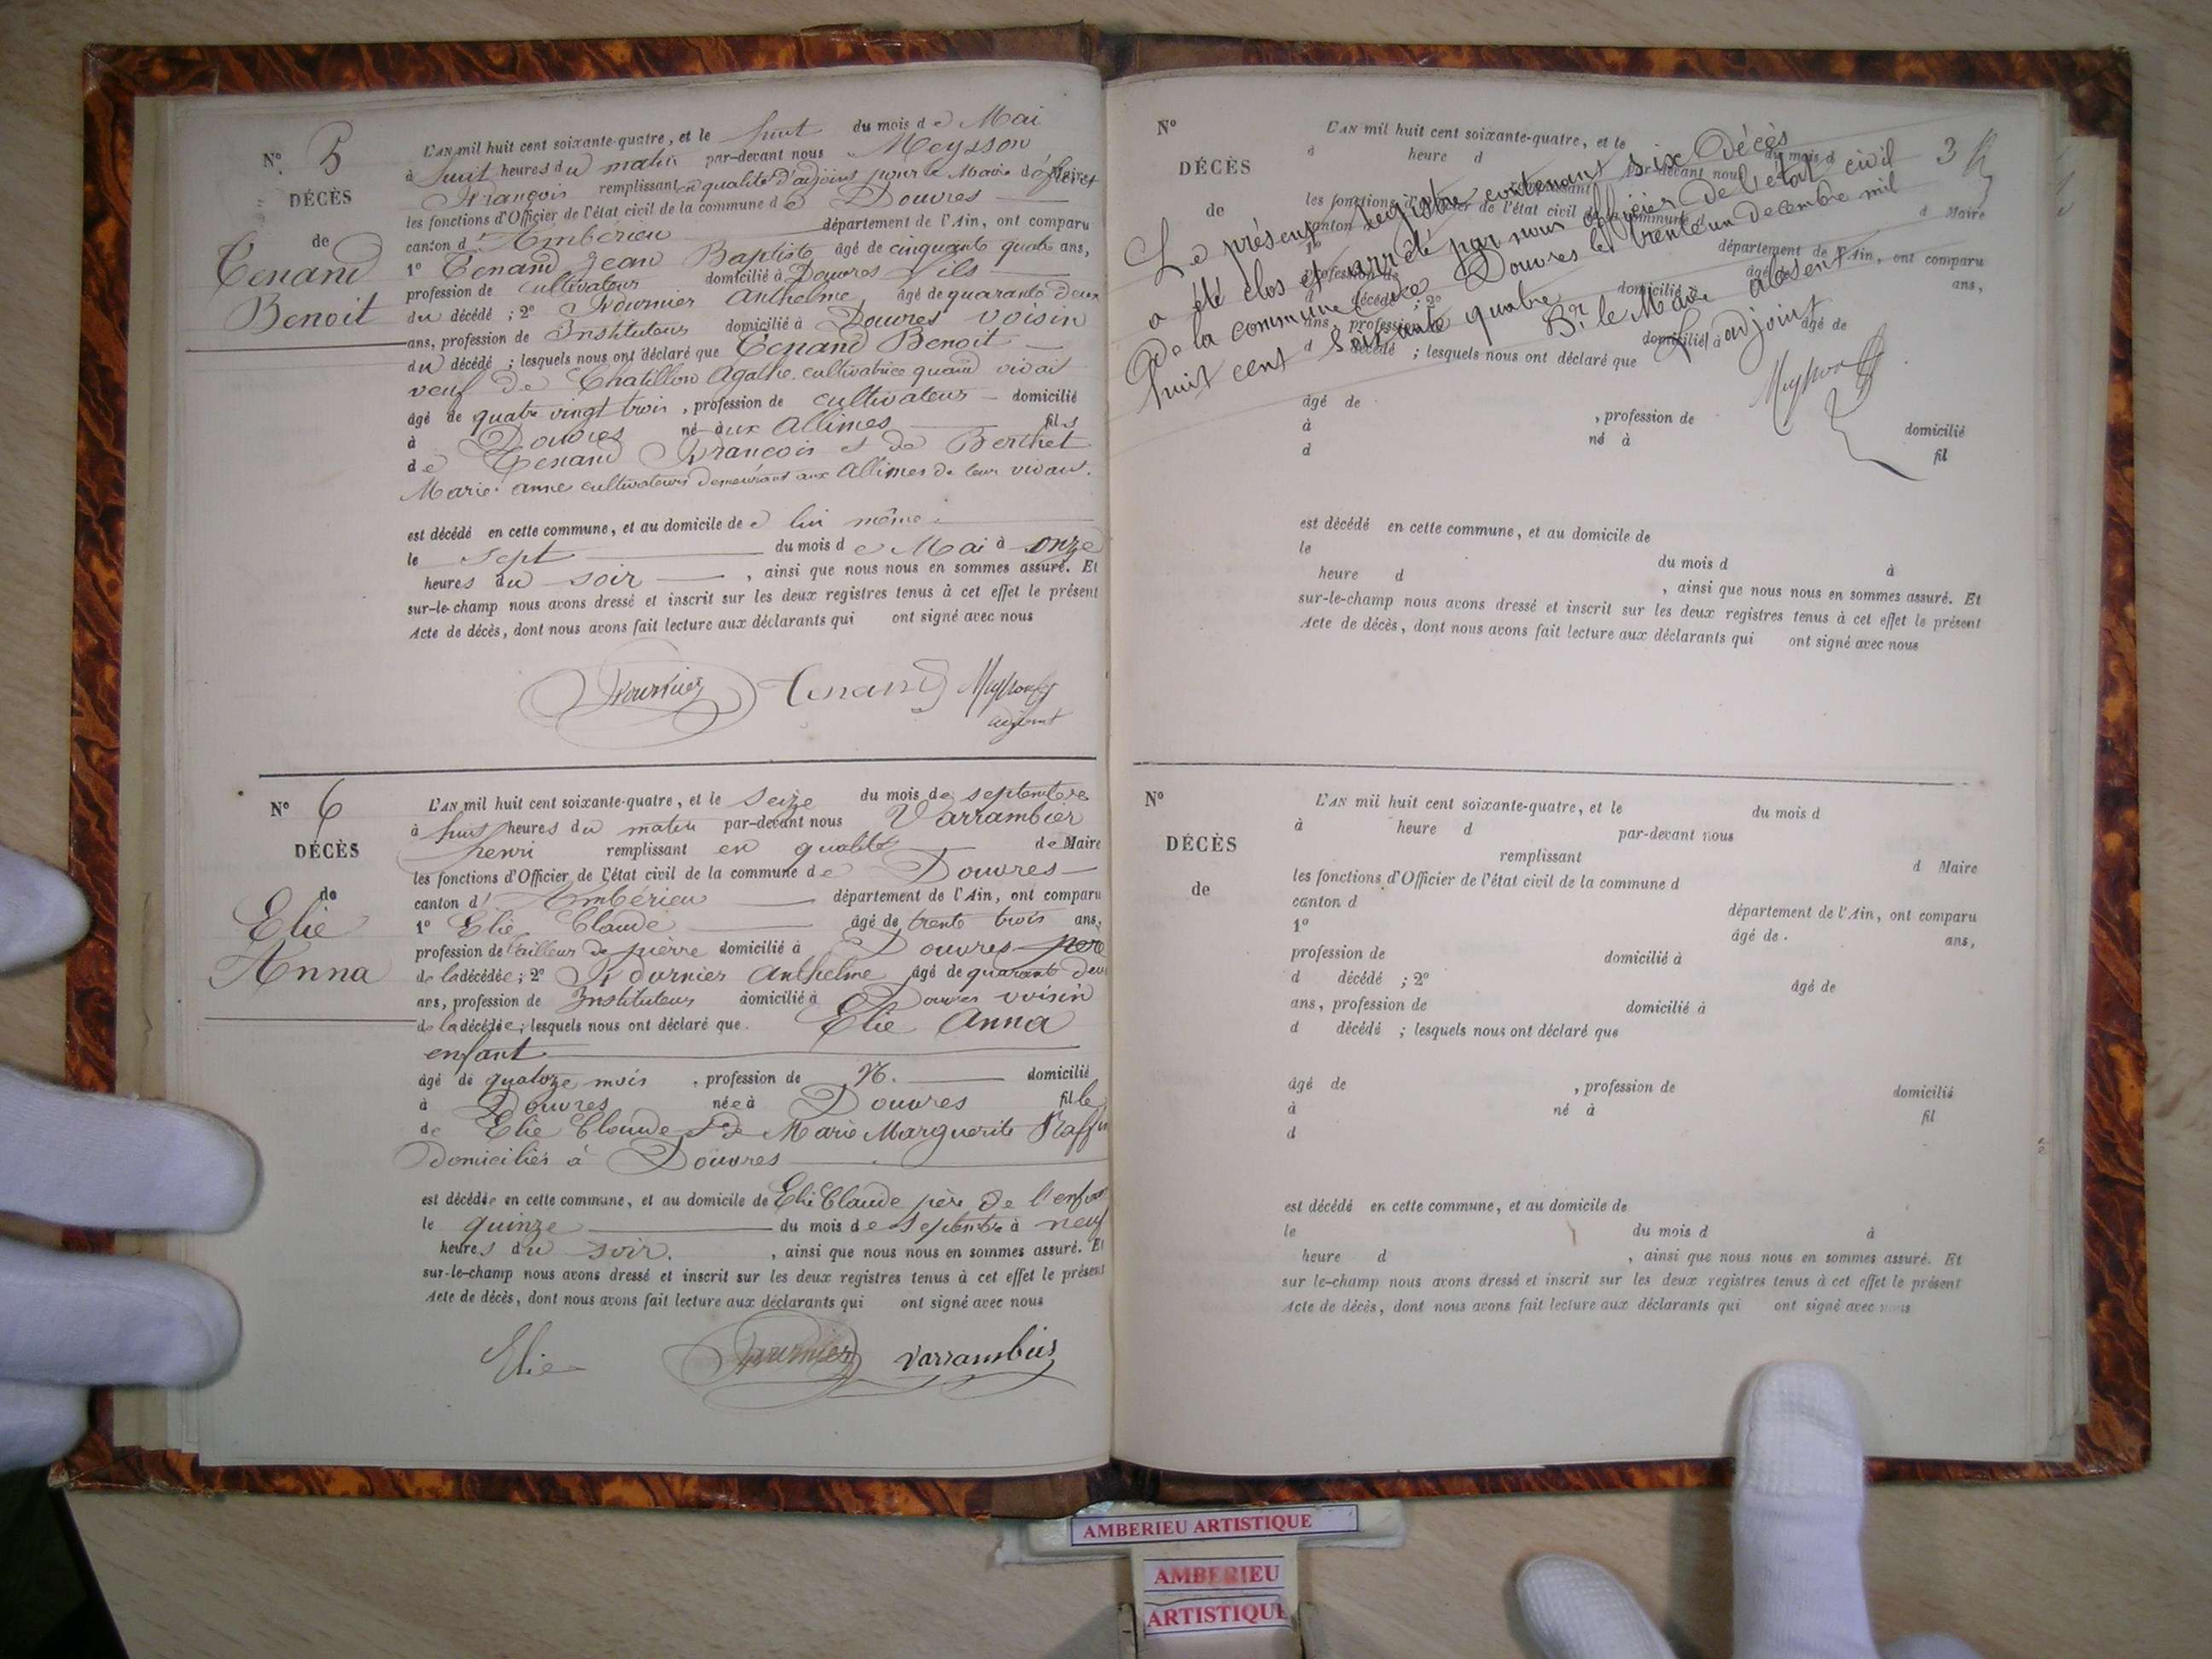 N° 5
DÉCÈS
de
Tenand
Benoit
L'AN mil huit cent soixante-quatre, et le huit du mois de Mai
à huit heures du matin par-devant nous Meysson
François remplissant en qualité d'adjoint pour le Maire
les fonctions d'Officier de l'état civil de la commune de Douvres
canton d'Ambérieu département de l'Ain, ont comparu
1° Tenand Jean Baptiste âgé de cinquante quatre ans,
profession de cultivateur domicilié à Douvres fils
du décédé ; 2° Fournier Anthelme, âgé de quarante deux
ans, profession de Instituteur domicilié à Douvres voisin
du décédé ; lesquels nous ont déclaré que Tenand Benoit
veuf de Chatillon Agathe cultivatrice quand vivait
âgé de quatre vingt trois, profession de cultivateur domicilié
à Douvres né aux Allimes fils
de Tenand François et de Berthet
Marie anne cultivateurs demeurant aux Allimes de leur vivant.
est décédé en cette commune, et au domicile de lui même
le sept du mois de Mai à onze
heures du soir, ainsi que nous nous en sommes assuré. Et
sur-le-champ nous avons dressé et inscrit sur les deux registres tenus à cet effet le présent
Acte de décès, dont nous avons fait lecture aux déclarants qui ont signé avec nous
Fournier Tenand Meysson
adjoint
N° 6
DÉCÈS
de
Elie
Anna
L'AN mil huit cent soixante-quatre, et le seize du mois de septembre
à huit heures du matin par-devant nous Varrambier
henri remplissant en qualité de Maire
les fonctions d'Officier de l'état civil de la commune de Douvres
canton d'Ambérieu département de l'Ain, ont comparu
1° Elie Claude âgé de trente trois ans,
profession de tailleur de pierre domicilié à Douvres père
de la décédée ; 2° Fournier Anthelme âgé de quarante deux
ans, profession de Instituteur domicilié à Douvres voisin
de la décédée ; lesquels nous ont déclaré que Elie Anna
enfant
âgé de quatoze mois, profession de N. domicilié
à Douvres née à Douvres fille
de Elie Claude & de Marie Marguerite Raffin
Domiciliés à Douvres
est décédée en cette commune, et au domicile de Elie Claude père de l'enfant
le quinze du mois de septembre à neuf
heures du soir. , ainsi que nous nous en sommes assuré. Et
sur-le-champ nous avons dressé et inscrit sur les deux registres tenus à cet effet le présent
Acte de décès, dont nous avons fait lecture aux déclarants qui ont signé avec nous
Elie Fournier Varrambier
N°
DÉCÈS
de
L'AN mil huit cent soixante-quatre, et le du mois d
à heure d par-devant nous
remplissant d Maire
les fonctions d'Officier de l'état civil de la commune d
canton d département de l'Ain, ont comparu
1° âgé de ans,
profession de domicilié à
d décédé ; 2° âgé de
ans, profession de domicilié à
d décédé ; lesquels nous ont déclaré que
Le présent registre contenant six Décès
a été clos et arrêté par nous officier de l'état civil
de la commune de Douvres le trente un decembre mil
huit cent soixante quatre
Pr. le Maire absent
L'adjoint
Meysson
âgé de , profession de domicilié
à né à fil
d
est décédé en cette commune, et au domicile de
le du mois d à
heure d , ainsi que nous nous en sommes assuré. Et
sur-le-champ nous avons dressé et inscrit sur les deux registres tenus à cet effet le présent
Acte de décès, dont nous avons fait lecture aux déclarants qui ont signé avec nous
N°
DÉCÈS
de
L'AN mil huit cent soixante-quatre, et le du mois d
à heure d par-devant nous
remplissant d Maire
les fonctions d'Officier de l'état civil de la commune d
canton d département de l'Ain, ont comparu
1° âgé de . ans,
profession de domicilié à
d décédé ; 2° âgé de
ans, profession de domicilié à
d décédé ; lesquels nous ont déclaré que
âgé de , profession de domicilié
à né à fil
d
est décédé en cette commune, et au domicile de
le du mois d à
heure d , ainsi que nous nous en sommes assuré. Et
sur le-champ nous avons dressé et inscrit sur les deux registres tenus à cet effet le présent
Acte de décès, dont nous avons fait lecture aux déclarants qui ont signé avec nous
AMBERIEU ARTISTIQUE
AMBERIEU
ARTISTIQUE